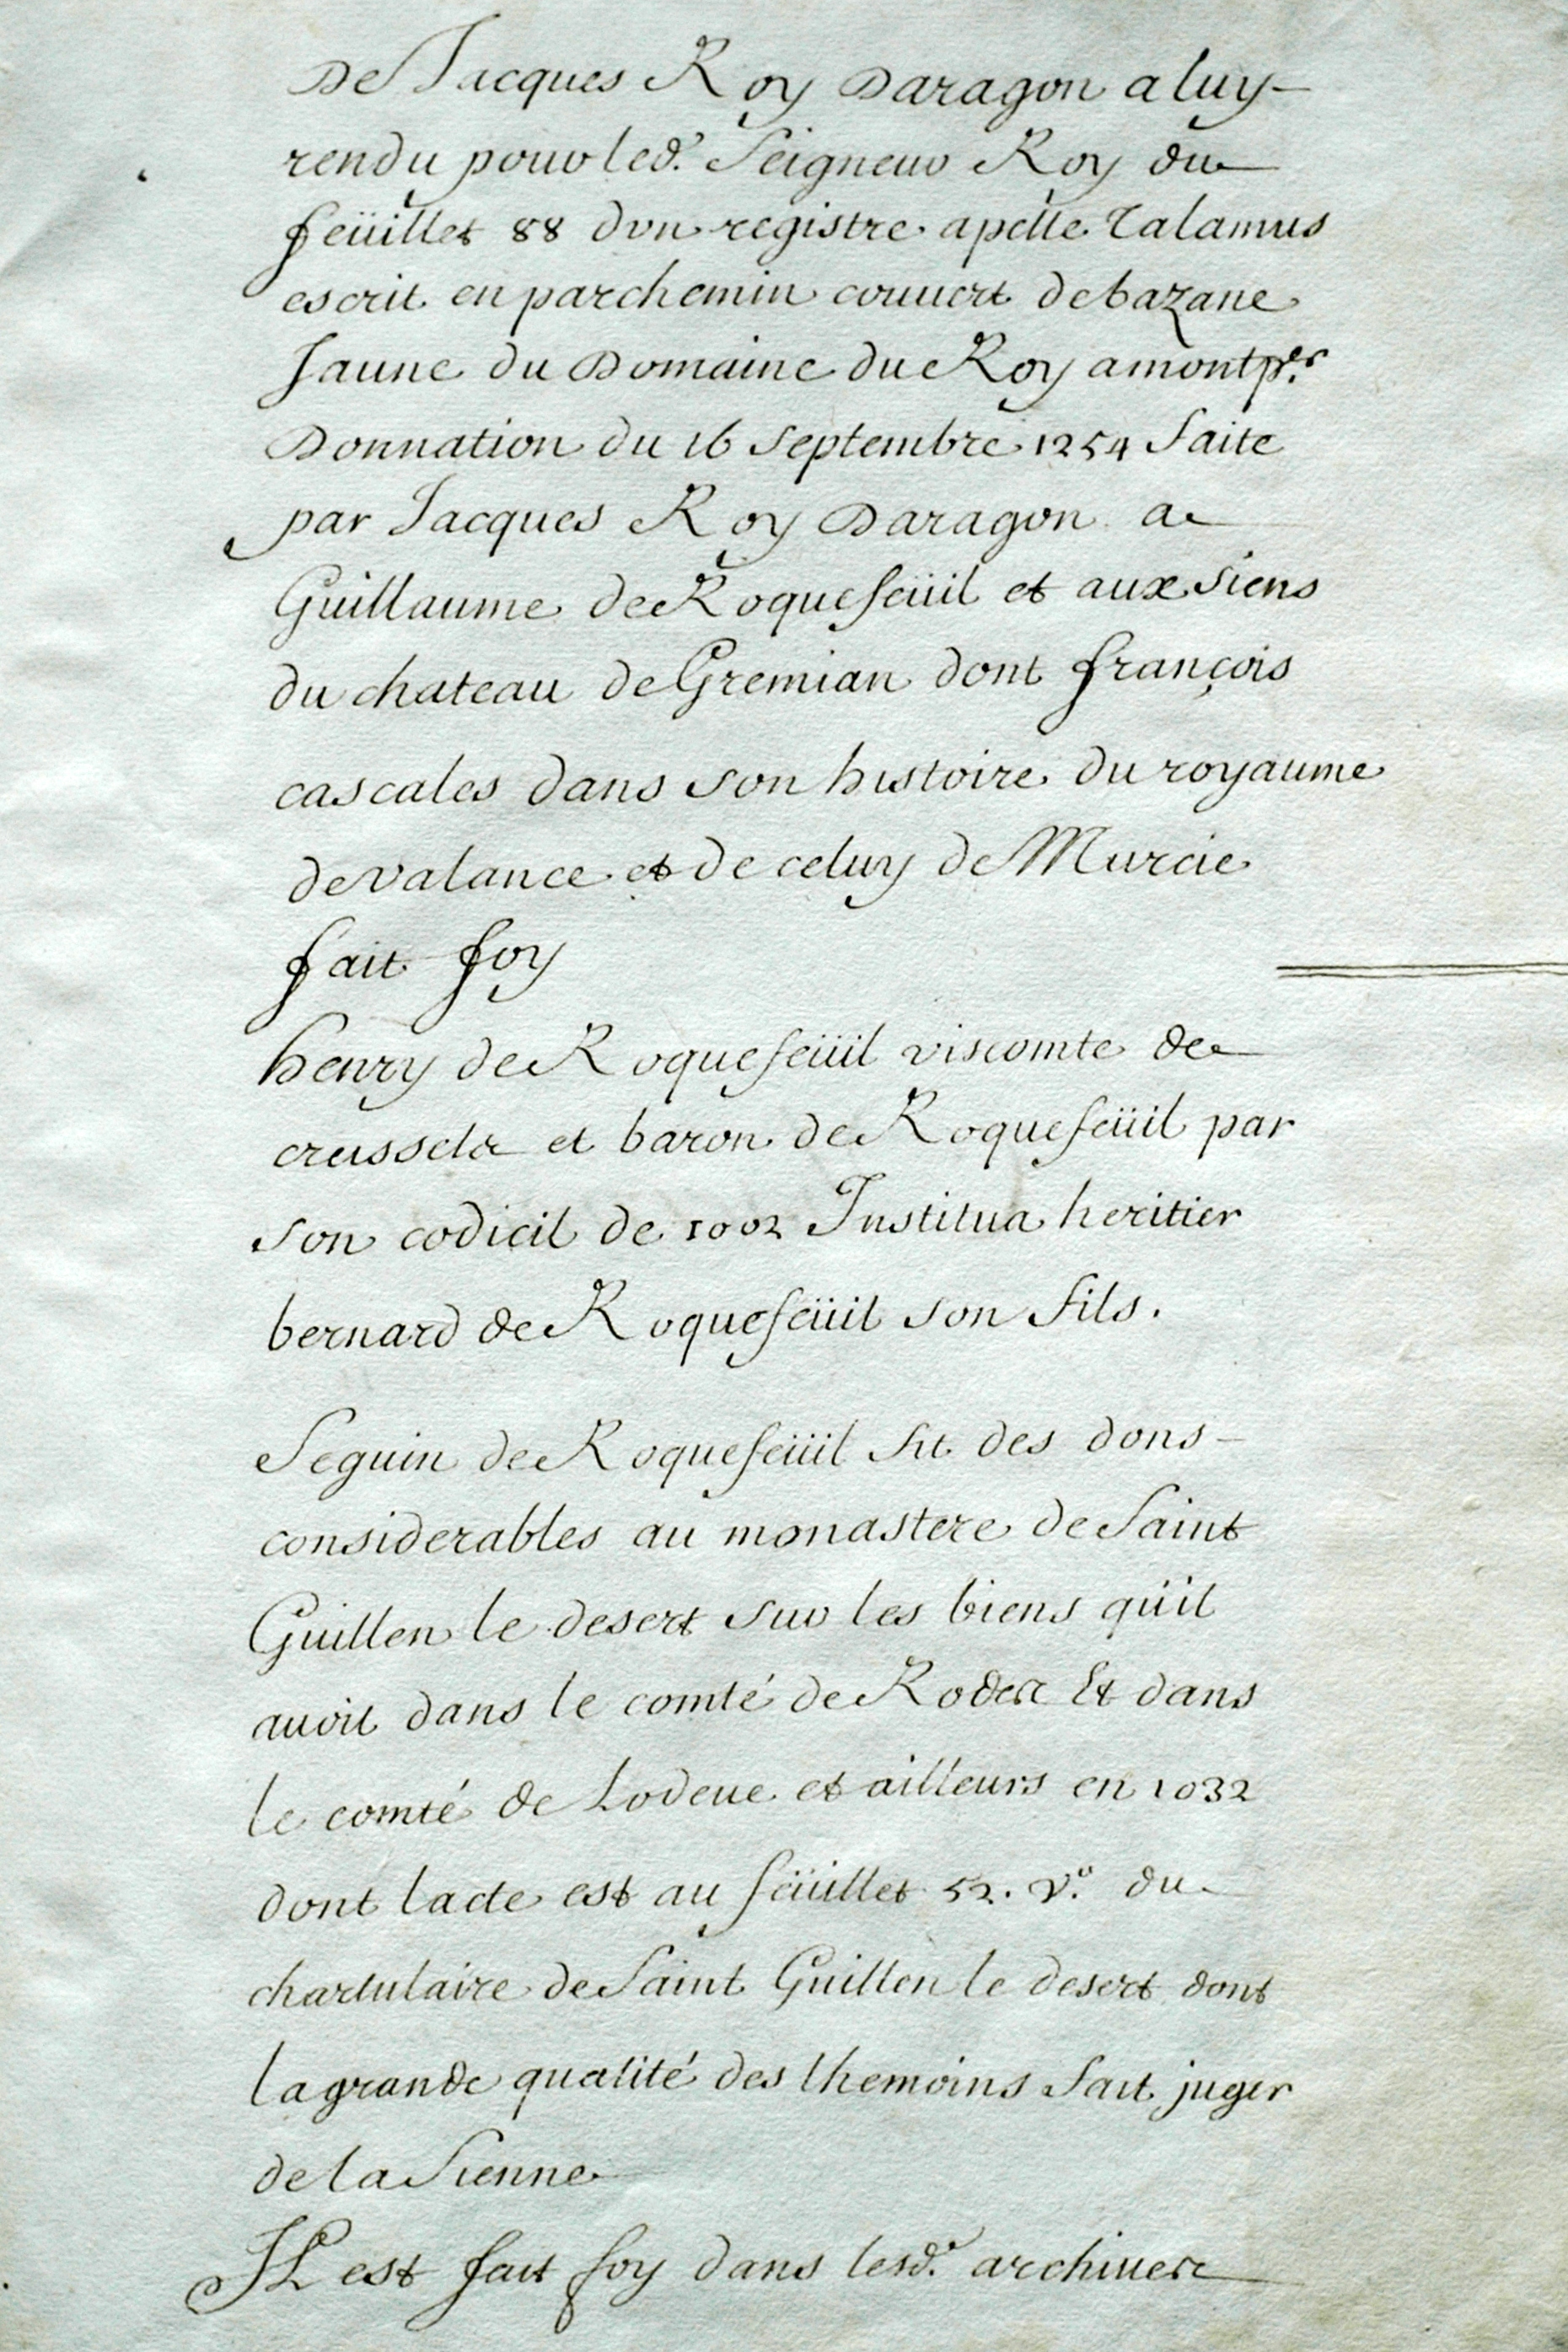 De Jacques Roy Daragon a luy
rendu pour led.t Seigneur Roy du
feüillet 88 dun registre apelle Talamus
escrit en parchemin couuert de bazane
Jaune du Domaine du Roy a montp.er
Donnation du 16 Septembre 1254 faite
par Jacques Roy Daragon a
Guillaume de Roquefeüil et aux siens
du chateau de Gremian dont françois
cascales dans son histoire du royaume
de valance et de celuy de Murcie
fait foy
henry de Roquefeüil viscomte de
creissels et baron de Roquefeüil par
son codicil de 1002 Institua heritier
bernard de Roquefeüil son fils.
Seguin de Roquefeüil fit des dons
considerables au monastere de Saint
Guillen le desert sur les biens qu'il
auoit dans le comté de Rodez Et dans
le comté de Lodeue et ailleurs en 1032
dont lacte est au feüillet 52. v.o du
chartulaire de Saint Guillen le desert dont
la grande qualité des themoins fait juger
de la Sienne
Il est fait foy dans lesd.s archiues